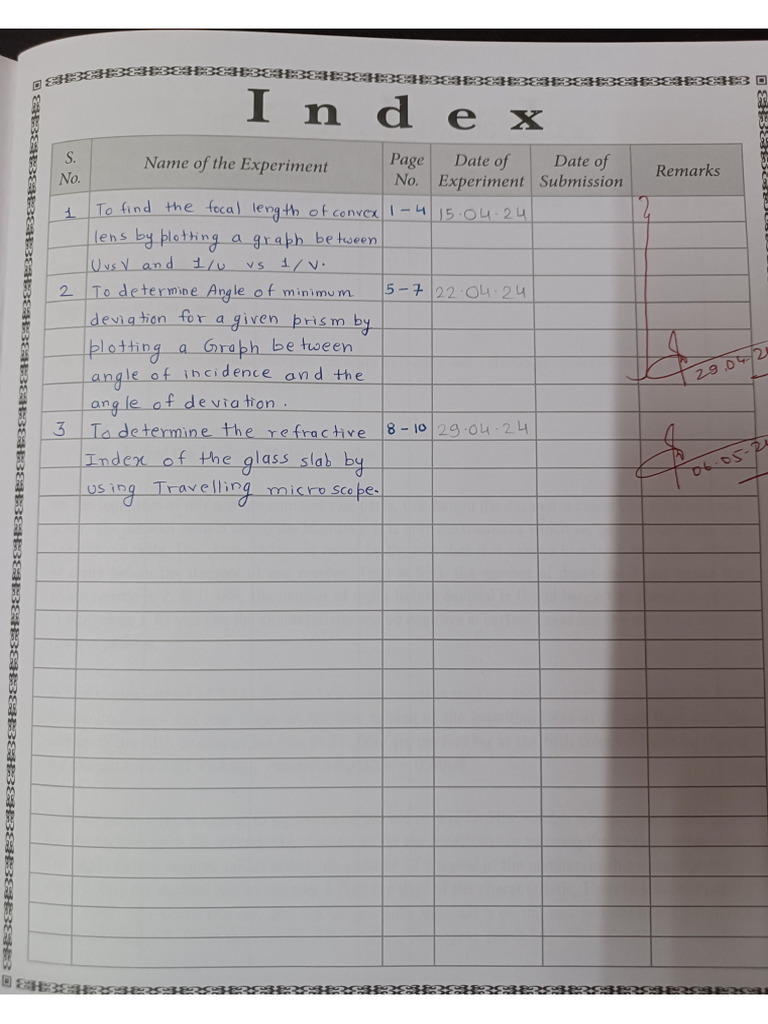 Index
S. No. Name of the Experiment Page No. Date of Experiment Date of Submission Remarks
1 To find the focal length of convex 1-4 15.04.24
lens by plotting a graph between
U vs V and 1/u vs 1/v.
2 To determine Angle of minimum 5-7 22.04.24
deviation for a given prism by
plotting a Graph between
angle of incidence and the
angle of deviation.
29.04.2
3 To determine the refractive 8-10 29.04.24
Index of the glass slab by
06.05.24
using Travelling microscope.